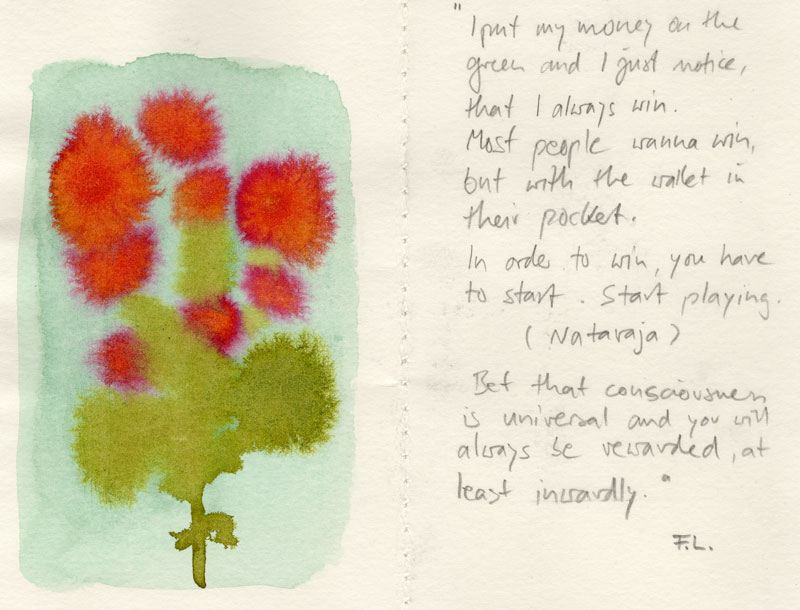 "I put my money on the
green and I just notice,
that I always win.
Most people wanna win,
but with the wallet in
their pocket.
In order to win, you have
to start. Start playing.
(Nataraja)
Bet that consciousness
is universal and you will
always be rewarded, at
least inwardly."
F.L.